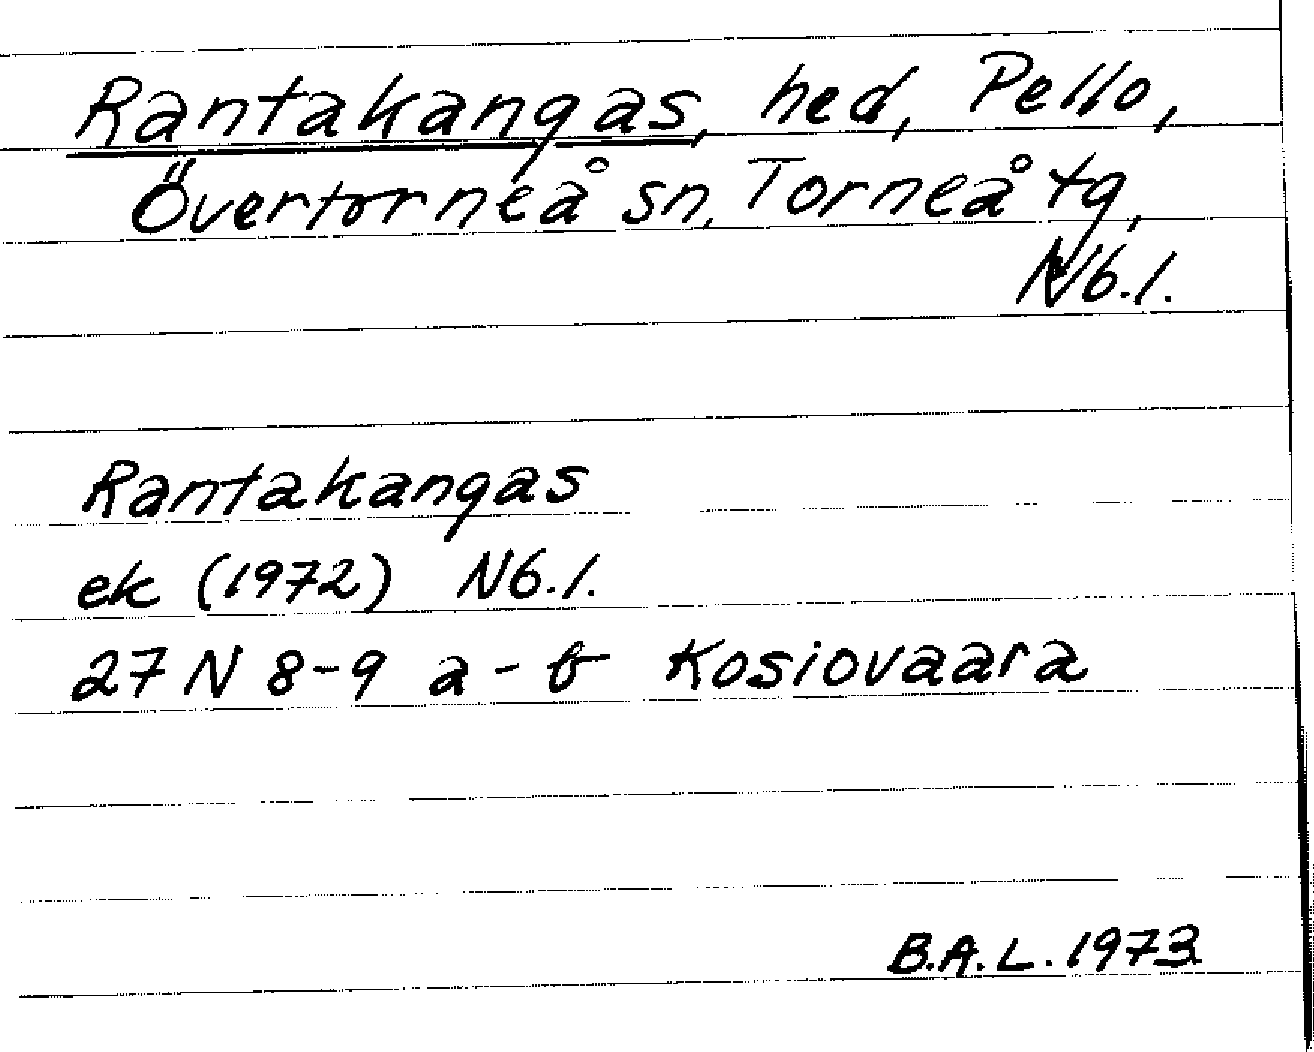 Rantakangas, hed, Pello,
Övertorneå sn, Torneå tg,
Nb.l.
Rantakangas
ek (1972) Nb.l.
27 N 8-9 a-b Kosiovaara
B.A.L. 1973